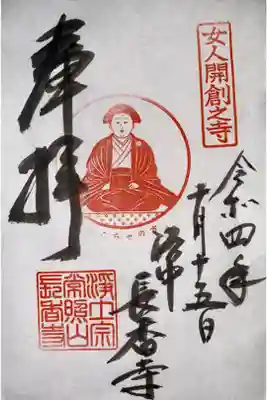 奉拝
女人開創之寺
令和四年
十月十五日
洛中
長香寺
浄土宗
常照山
長香寺